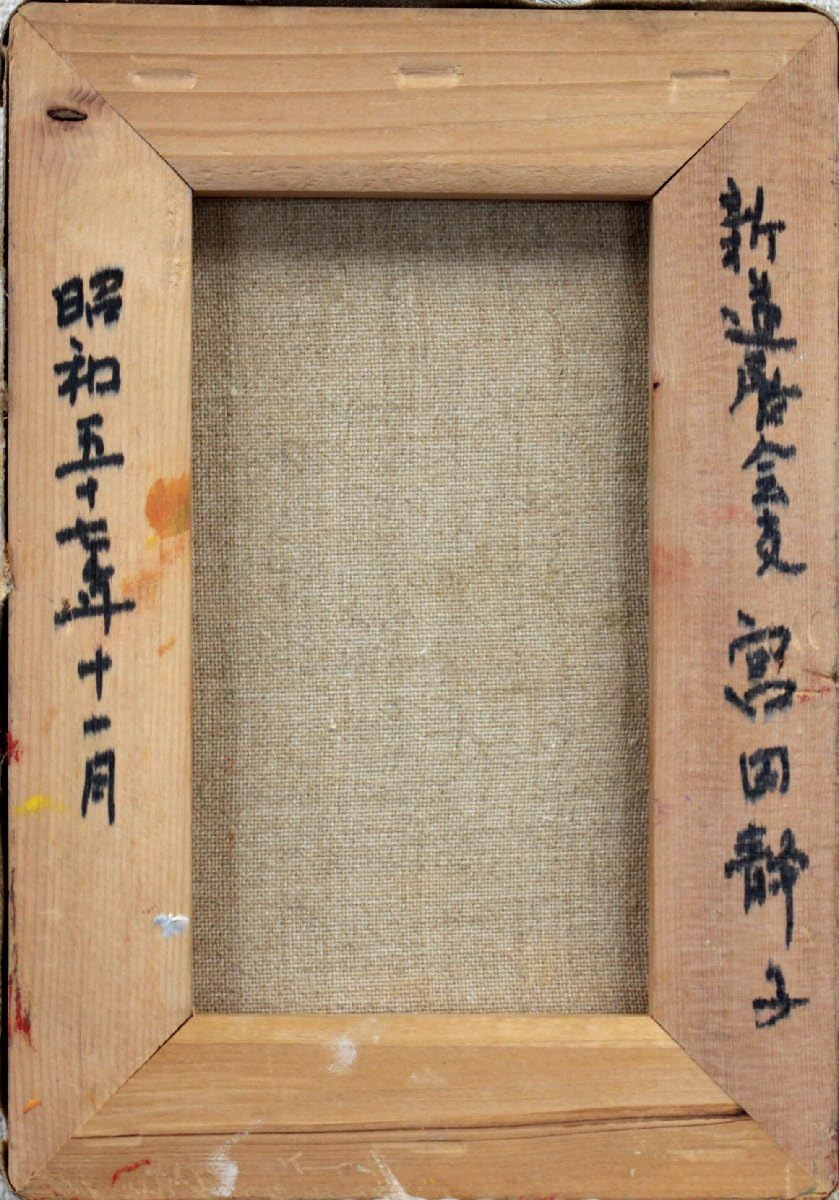 新道展会友 宮田静子
昭和五十七年十一月